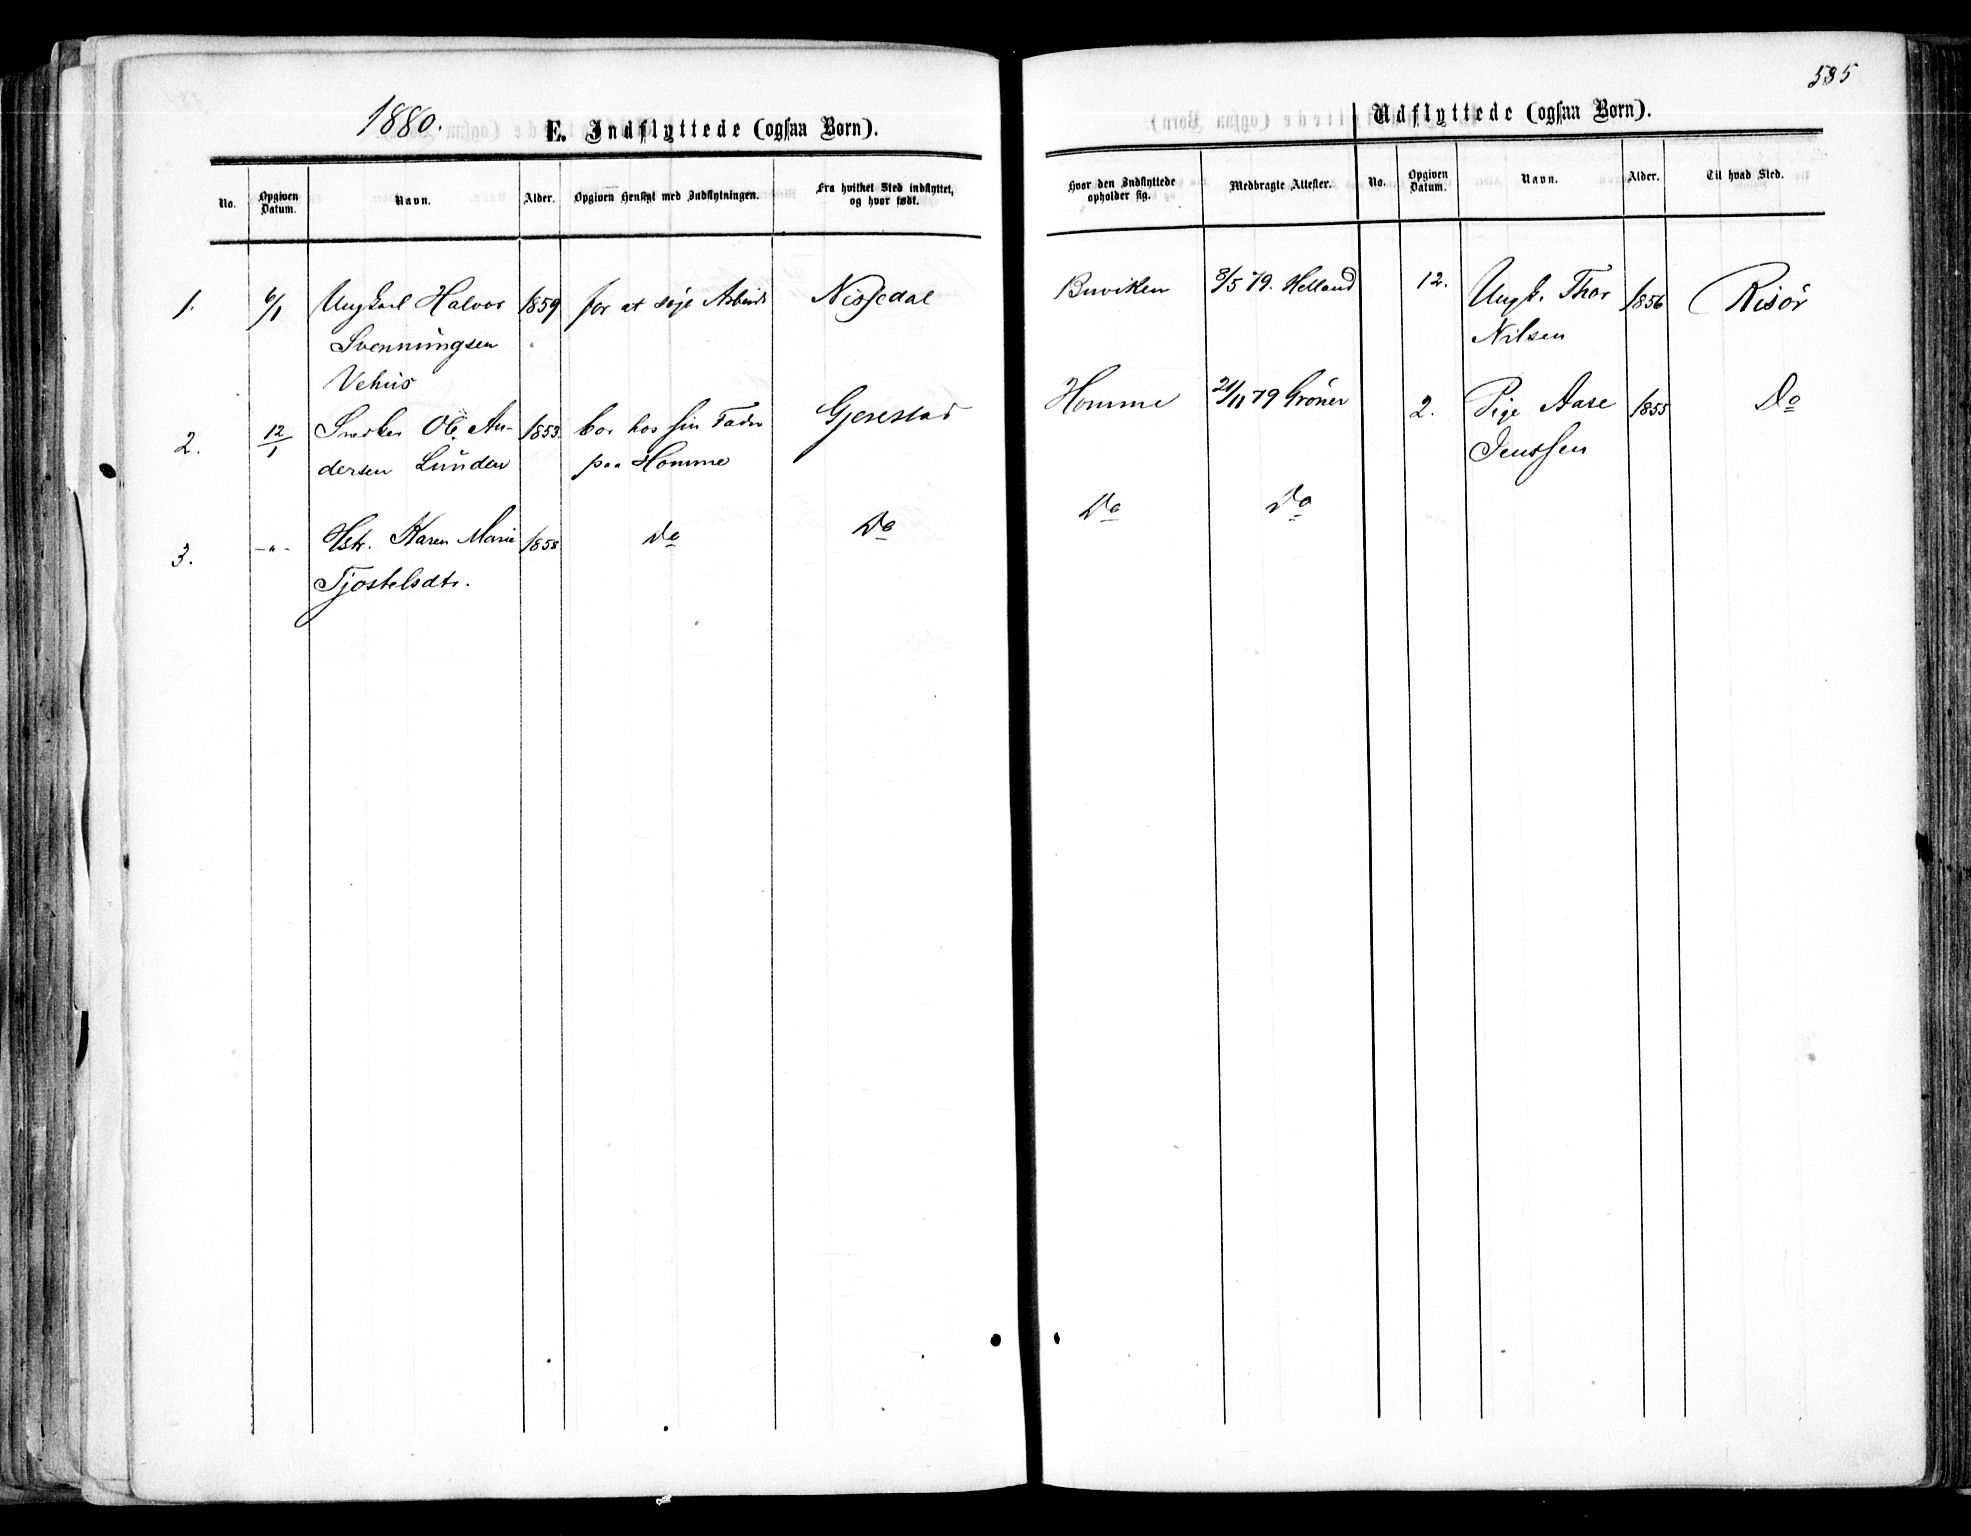 535
1880.
E. Indflyttede (ogsaa Børn).
No.
Opgiven Datum.
Navn.
Alder.
Opgiven Hensigt med Indflytningen.
Fra hvilket Sted indflyttet, og hvor født.
1.
6/1
Ungkarl Halvor
Svenningsen
Vehus
1859
for at søge Arbeide
Nissedal
2.
12/1
Snedker Ole An-
dersen Lunden
1853.
bor hos sin Fader
paa Homme
Gjerestad
3.
-"-
Hstr. Karen Marie
Tjostelsdtr.
1858
Do
Do
Udflyttede (ogsaa Børn).
Hvor den Indflyttede opholder sig.
Medbragte Attester.
No.
Opgiven Datum.
Navn.
Alder.
Til hvad Sted.
Buviken
8/5 79. Helland
12.
Ungk. Thor
Nilsen
1856
Risör
Homme
21/11 79 Gröner
2.
Pige Aase
Jenssen
1855
Do
Do
Do